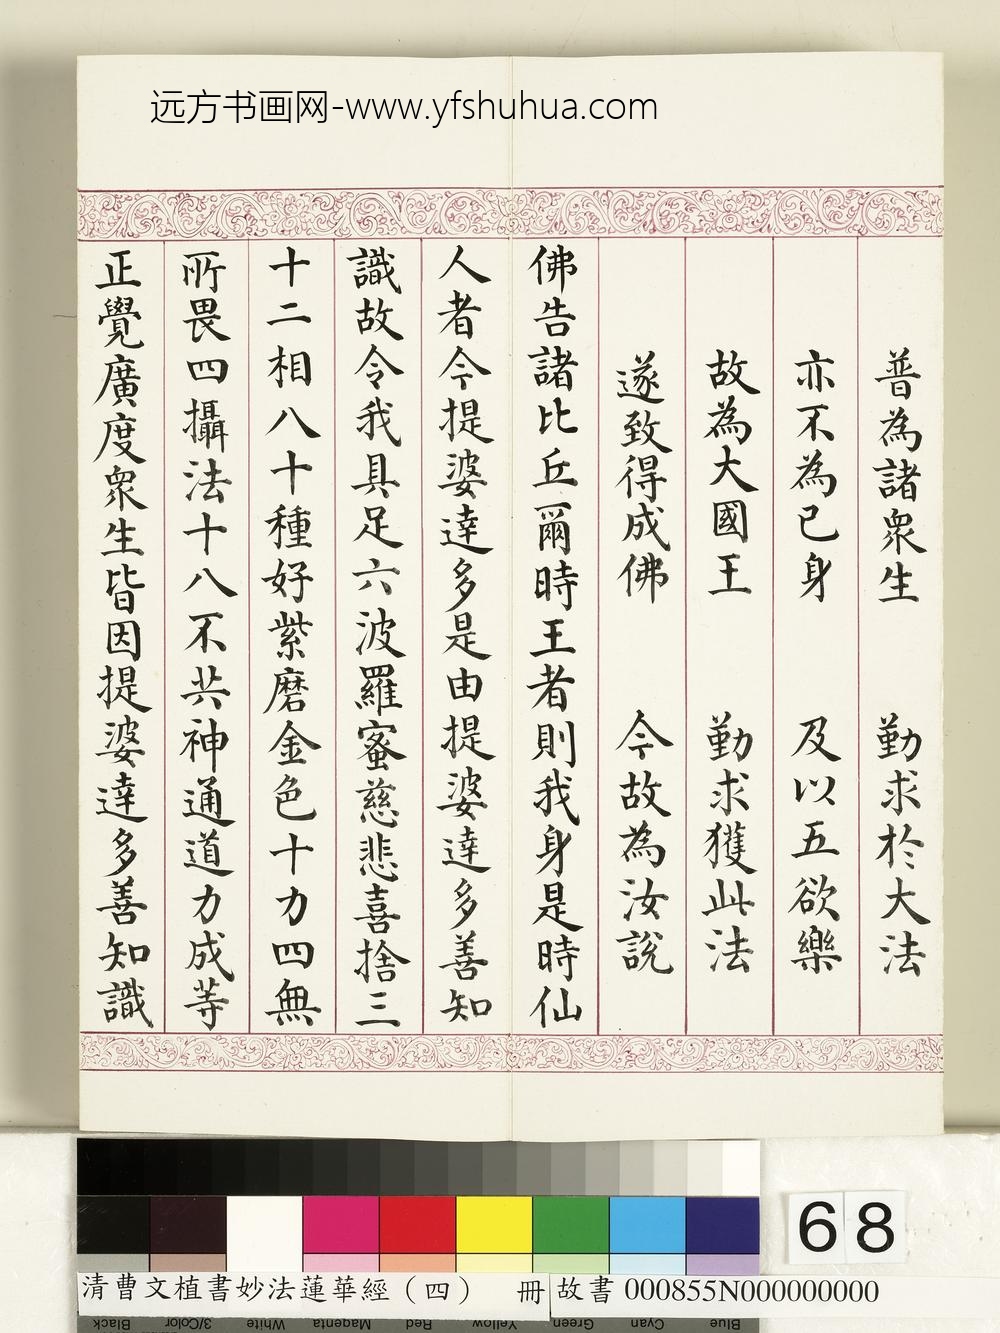 远方书画网-www.yfshuhua.com
普為諸衆生 勤求於大法
亦不為己身 及以五欲樂
故為大國王 勤求獲此法
遂致得成佛 今故為汝說
佛告諸比丘爾時王者則我身是時仙
人者今提婆達多是由提婆達多善知
識故令我具足六波羅蜜慈悲喜捨三
十二相八十種好紫磨金色十力四無
所畏四攝法十八不共神通道力成等
正覺廣度衆生皆因提婆達多善知識
68
清曹文植書妙法蓮華經（四） 冊 故書 000855N000000000
Black 3/Color White Magenta Red Yellow Green Cyan Blue